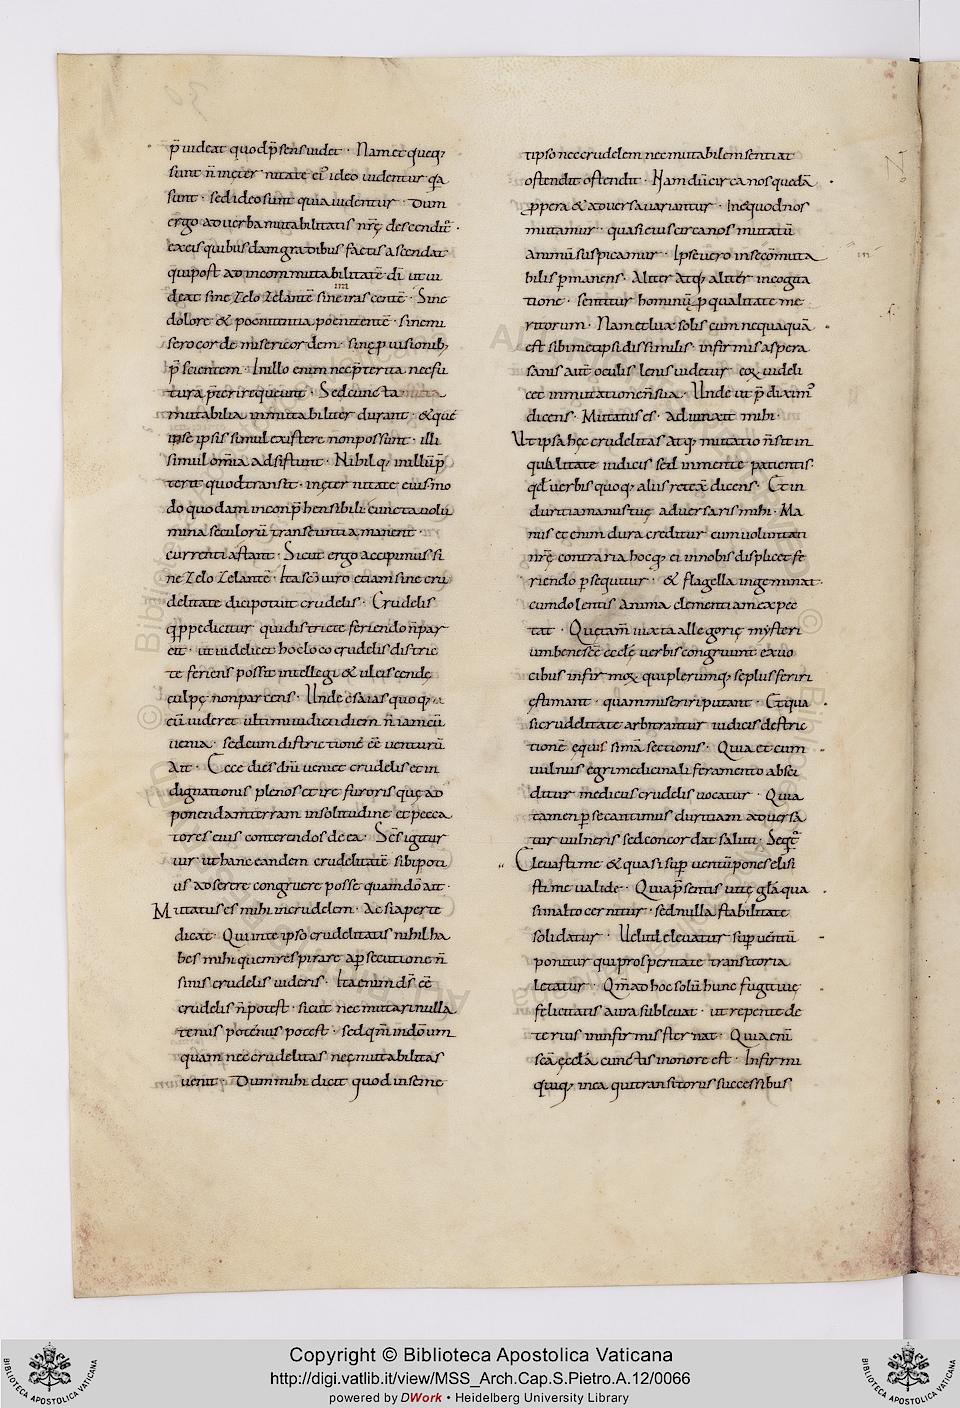 p̄ uideat quod p̄sens uidet · Nam et quęq;
sunt n̄ in ęternitate ei᾿ ideo uidentur q̄a
sunt · sed ideo sunt quia uidentur · Dum
ergo ad uerba mutabilitatis nr̄ę descendit᷒ ·
ex eis quibusdam gradibus factis ascendat
qui post ad incommutabilitatē dī ut ui
deat sine zelo zelantē sine iras centē · Sine
im
dolore & poenitentia poenitentē · sine mi
sero corde misericordem · sine p̄uisionib;
p̄scientem · In illo enim nec p̄terita nec fu
tura p̄teriri queunt · Sed cuncta muta
mutabilia inmutabiliter durant · & quę
ipse ipsis simul existere non possunt · illi
simul om̄ia adsistunt · Nihilq; in illū p̄
terit quod transit · in ęternitate eius · mo
do quodam incomp̄hensibili cuncta uolu
mina seculorū transeuntia manent ·
currentia stant · Sicut ergo accipimus si
ne zelo zelantē · Ita sc̄o uiro etiam sine cru
delitate dici potuit crudelis · Crudelis
q̄ppe dicitur qui districte feriendo n̄ par
cit · ut uidelicet hoc loco crudelis distric
te feriens possit intellegi & ulciscendę
culpę non parcens · Unde esaias quoq;
cū uideret ultimi iudicii diem n̄ iam cū
uenia · sed cum districtionē eē uenturū
Ait · Ecce dies dn̄i ueniet crudelis et in
dignationis plenos et irę furoris quę ad
ponendam terram in solitudine et pecca
tores eius conterendos de ea · Sc̄s igitur
uir ut hanc eandem crudelitatē sibi poti
us adserere congruere posse quam dō ait ·
Mutatus es mihi in crudelem · Ac si aperte
dicat · Qui in te ipso crudelitatis nihil ha
bes mihi quem respirare a p̄secutione n̄
sinis crudelis uideris · Ita enim ds̄ eē
crudelis n̄ potest · sicut nec mutari nulla
tenus potenus potest · sed qm̄ in dōm um
quam nec crudelitas nec mutabilitas
uenit · Dum mihi dicit quod in seme
tipso nec crudelem nec mutabilem sentiat
ostendit ostendit · Nam dū circa nos quedā
p̄pera & aduersa uariantur · In eo quod nos
mutamur · quasi eius circa nos mutatū
animū suspicamur · Ipse uero in se incōmuta
bilis p̄manens · Aliter atq; aliter in cogita
tione · sentitur hominū p̄ qualitate me
ritorum · Nam et lux solis cum nequaquā
est sibimetipsi dissimilis · infirmis aspera
sanis aut̄ oculis lenis uidetur eox uideli
cet inmutatione n̄ sua · Unde ut p̄diximꝰ
dicens · Mutatus es · adiunxit mihi ·
Ut ipsa hęc crudelitas atq; mutatio n̄ sit in
qualitate iudicis sed in mente patientis ·
qd̄ uerbis quoq; aliis retexā dicens · Et in
duritia manus tuę aduersaris mihi · Ma
nus et enim dura creditur cum uoluntati
nr̄ę contraria hoc q; ei in nobis displicet fe
riendo p̄sequitur · & flagella ingeminat ·
cum dolentis anima clementiam expec
tat · Quę tam̄ iuxta allegorię mysteri
um bene sc̄ę ecclę uerbis congruunt ex uo
cibus infirmox qui plerumq; se plus feriri
ęstimant · quam miseriri putant · Et qua
si crudelitate arbitrantur iudicis distric
tionē ęquissimā sectionis · Quia et cum
uulnus egri medicinali feramento absci
ditur medicus crudelis uocatur · Quia
tamen p̄ se cantimus duritiam aduersa
tur uulneris sed concordat saluti · Seqt̄
Eleuasti me & quasi sup̄ uentū pones elisi
sti me ualide · Quia p̄sentis uitę gl̄a qua
si in alto cernitur · sed nulla stabilitate
solidatur · Uelut eleuatur sup̄ uentū
ponitur qui prosperitate transitoria
lętatur · Qm̄ ad hoc solū hunc fugitiuę
felicitatis aura subleuat · ut repente de
terius in infirmis sternat · Quia eni
sc̄a ęccl̄a cunctis in onore est · Infirmi
quiq; in ea qui transitoriis successibus